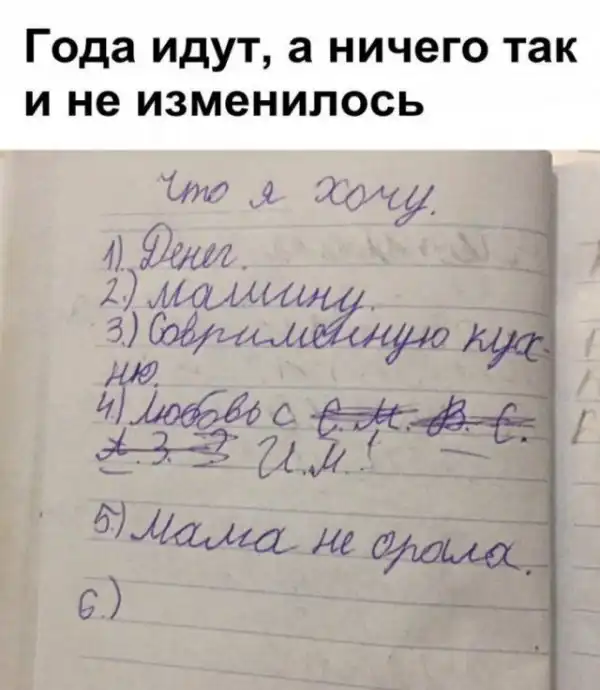 Года идут, а ничего так
и не изменилось
Что я хочу.
1). Денег.
2.) Машину.
3.) Совримен​ную кух-
ню.
4) Любовь с С. М. В. С.
А. З. З И.Й.!
5.) Мама не орала.
6.)